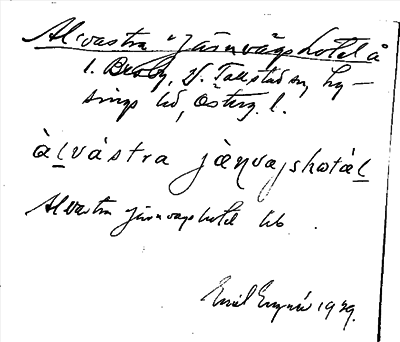 Alvastra Järnvägshotel å
1. Broby, V. Tollstad sn, Ly-
sings hd, Österg. l.
àlvástra jàṇvajshotál
Alvastra järnvägshotel kb.
Emil 1929.